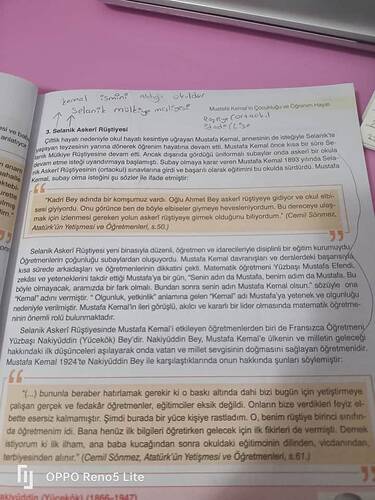 kemal ismini aldığı okuldur
Selanik mülkiye
Mustafa Kemal'in Çocukluğu ve Öğrenim Hayatı
3. Selanik Askerî Rüştiyesi
Çiftlik hayatı nedeniyle okul hayatı kesintiye uğrayan Mustafa Kemal, annesinin de isteğiyle Selanik'te
yaşayan teyzesinin yanına dönerek öğrenim hayatına devam etti. Mustafa Kemal önce kısa bir süre Se-
lanik Mülkiye Rüştiyesine devam etti. Ancak dışarıda gördüğü üniformalı subaylar onda askerî bir okula
devam etme isteği uyandırmaya başlamıştı. Subay olmaya karar veren Mustafa Kemal 1893 yılında Sela-
nik Askerî Rüştiyesinin (ortaokul) sınavlarına girdi ve başarılı olarak eğitimini bu okulda sürdürdü. Mustafa
Kemal, subay olma isteğini şu sözler ile ifade etmiştir:
"Kadri Bey adında bir komşumuz vardı. Oğlu Ahmet Bey askerî rüştiyeye gidiyor ve okul elbi-
sesi giyiyordu. Onu görünce ben de böyle elbiseler giymeye hevesleniyordum. Bu dereceye ulaş-
mak için izlenmesi gereken yolun askerî rüştiyeye girmek olduğunu biliyordum." (Cemil Sönmez,
Atatürk'ün Yetişmesi ve Öğretmenleri, s.50.)
Selanik Askerî Rüştiyesi yeni binasıyla düzenli, öğretmen ve idarecileriyle disiplinli bir eğitim kurumuydu.
Öğretmenlerin çoğunluğu subaylardan oluşuyordu. Mustafa Kemal davranışları ve derslerdeki başarısıyla
kısa sürede arkadaşları ve öğretmenlerinin dikkatini çekti. Matematik öğretmeni Yüzbaşı Mustafa Efendi,
zekâsı ve yeteneklerini takdir ettiği Mustafa'ya bir gün, "Senin adın da Mustafa, benim adım da Mustafa. Bu
böyle olmayacak, aramızda bir fark olmalı. Bundan sonra senin adın Mustafa Kemal olsun." sözüyle ona
"Kemal" adını vermiştir. " Olgunluk, yetkinlik" anlamına gelen "Kemal" adı Mustafa'ya yetenek ve olgunluğu
nedeniyle verilmiştir. Mustafa Kemal'in ileri görüşlü, akılcı ve kararlı bir lider olmasında matematik öğretme-
ninin önemli rolü bulunmaktadır.
Selanik Askerî Rüştiyesinde Mustafa Kemal'i etkileyen öğretmenlerden biri de Fransızca Öğretmeni
Yüzbaşı Nakiyüddin (Yücekök) Bey'dir. Nakiyüddin Bey, Mustafa Kemal'e ülkenin ve milletin geleceği
hakkındaki ilk düşünceleri aşılayarak onda vatan ve millet sevgisinin doğmasını sağlayan öğretmenidir.
Mustafa Kemal 1924'te Nakiyüddin Bey ile karşılaştıklarında onun hakkında şunları söylemiştir:
"(...) bununla beraber hatırlamak gerekir ki o baskı altında dahi bizi bugün için yetiştirmeye
çalışan gerçek ve fedakâr öğretmenler, eğitimciler eksik değildi. Onların bize verdikleri feyiz el-
bette esersiz kalmamıştır. Şimdi burada bir yüce kişiye rastladım. O, benim rüştiye birinci sınıfın-
da öğretmenim idi. Bana henüz ilk bilgileri öğretirken gelecek için ilk fikirleri de vermişti. Demek
istiyorum ki ilk ilham, ana baba kucağından sonra okuldaki eğitimcinin dilinden, vicdanından,
terbiyesinden alınır." (Cemil Sönmez, Atatürk'ün Yetişmesi ve Öğretmenleri, s.61.)
OPPO Reno5 Lite
Nakiyüddin (Yücekök) (1866-1947)